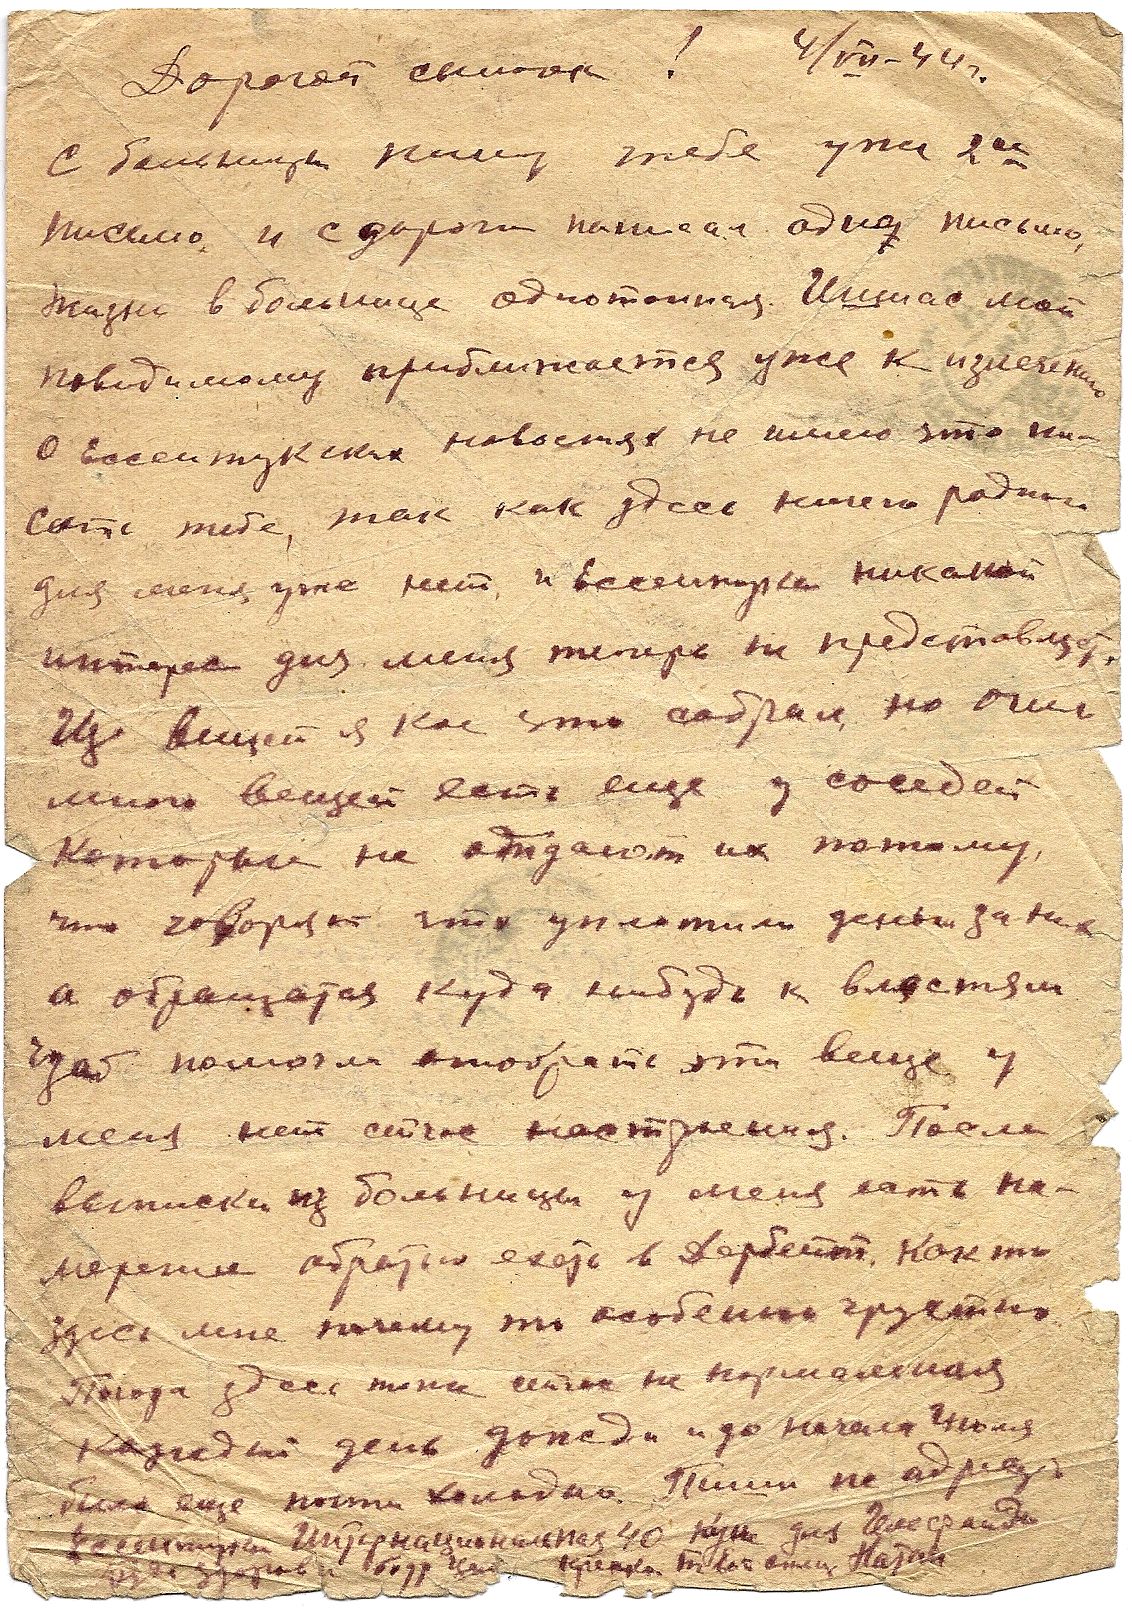 Дорогой сынок! 4/VII-44г.
С больницы пишу тебе уже 2ое
письмо, и с дороги написал одно письмо,
жизнь в больнице однотонная. Ишиас мой
повидимому приближается уже к излечению
О Ессентукских новостях не имею что пи-
сать тебе, так как здесь ничего родного
для меня уже нет, и Ессентуки никакой
интерес для меня теперь не представляет.
Из вещей я кое что собрал, но очень
много вещей есть еще у соседей
которые не отдают их потому,
что говорят что уплотили деньги за них
а обращатся куда нибудь к властям
чтоб помогли отобрать эти вещи у
меня нет сейчас настроения. После
выписки из больницы у меня есть на-
мерение обратно ехать в Дербент. Как то
здесь мне почему то особенно грустно.
Погода здесь тоже сейчас не нормальная
каждый день дожди и до начала Июля
было еще почти холодно. Пиши по адресу
Ессентуки Интернациональная 40 для
будь здоров и бодр Цел крепко Твой отец Натан